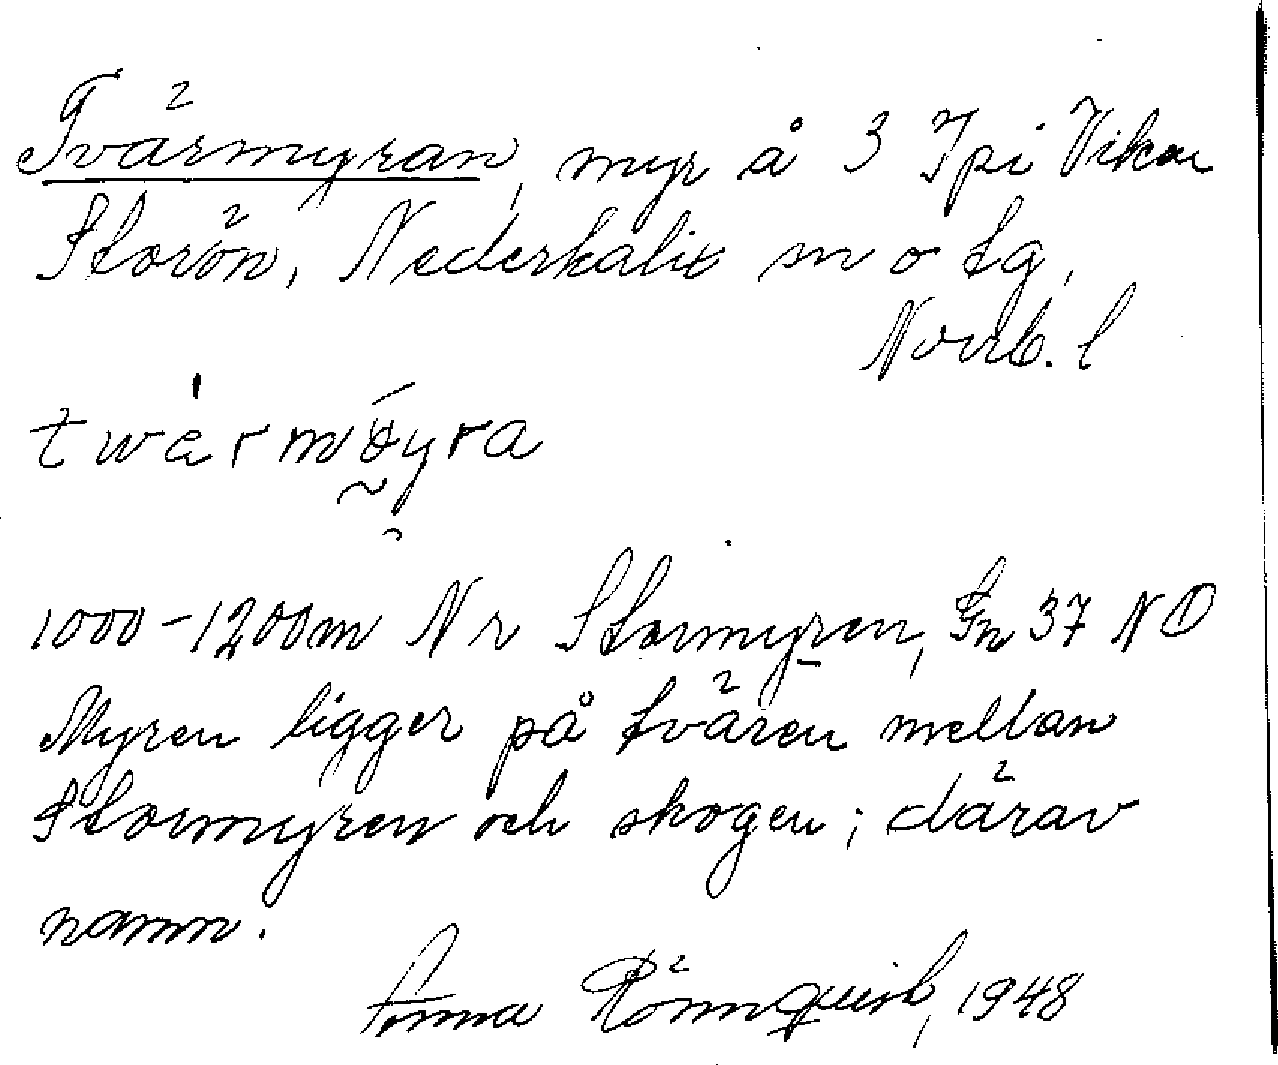 Tvärmyran, myr å 3 Ipi Vikar
Storön, Nederkalix sn o tg,
Norrb. l
twármýyra
1000-1200m N r Stormyren, Fn 37 NO
Myren ligger på tvären mellan
Stormyren och skogen; därav
namn.
Anna Rönnquist, 1948